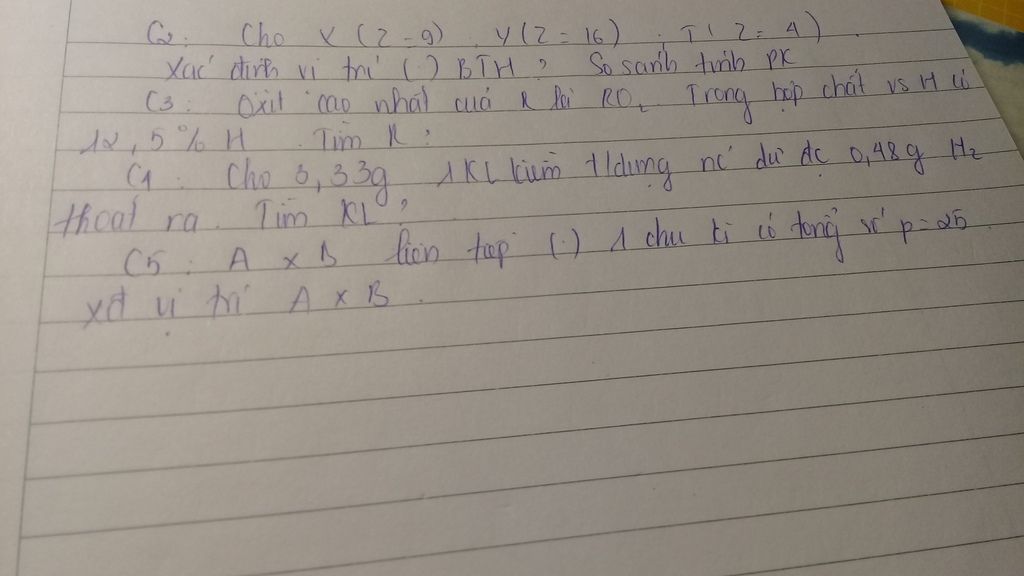 C2: Cho X (Z = 9) . Y (Z = 16) . T ( Z = 4 ) .
Xác định vị trí (.) BTH ? So sánh tính PK
C3 : Oxit cao nhất của R là RO2. Trong hợp chất vs H có
12,5% H . Tìm R ?
C4 : Cho 3,33g 1 KL kiềm t/dụng nc dư đc 0,48g H2
thoát ra. Tìm KL ?
C5 : A x B liên tiếp (.) 1 chu kì có tổng số p = 25
xđ vị trí A x B .